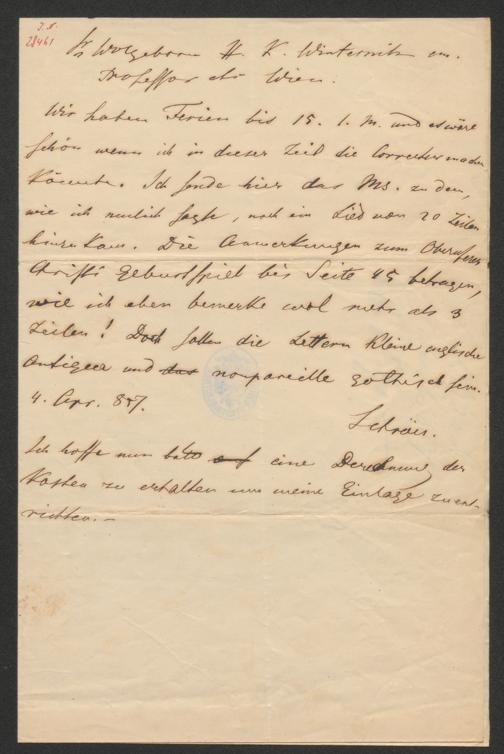 J. N.
28461
Sr Wolgeborn H. K. Winternitz in
Professor etc Wien.
Wir haben Ferien bis 15. l. M. und es wäre
schön wenn ich in dieser Zeit die Correctur machen
könnte. Ich sende hier das Ms. zu dem,
wie ich neulich sagte, noch ein Lied von 20 Zeilen
hinzu kam. Die Anmerkungen zum Oberuferer
Christi Geburtspiel bis Seite 45 betragen,
wie ich eben bemerke wol mehr als 3
Zeilen! Doch sollen die Lettern kleine englische
Antiqua und das nonpareille gothisch sein.
4. Apr. 857.
Schröer.
Ich hoffe nun bald eine Berechnung der
Kosten zu erhalten um meine Einlage zu ent-
richten.-